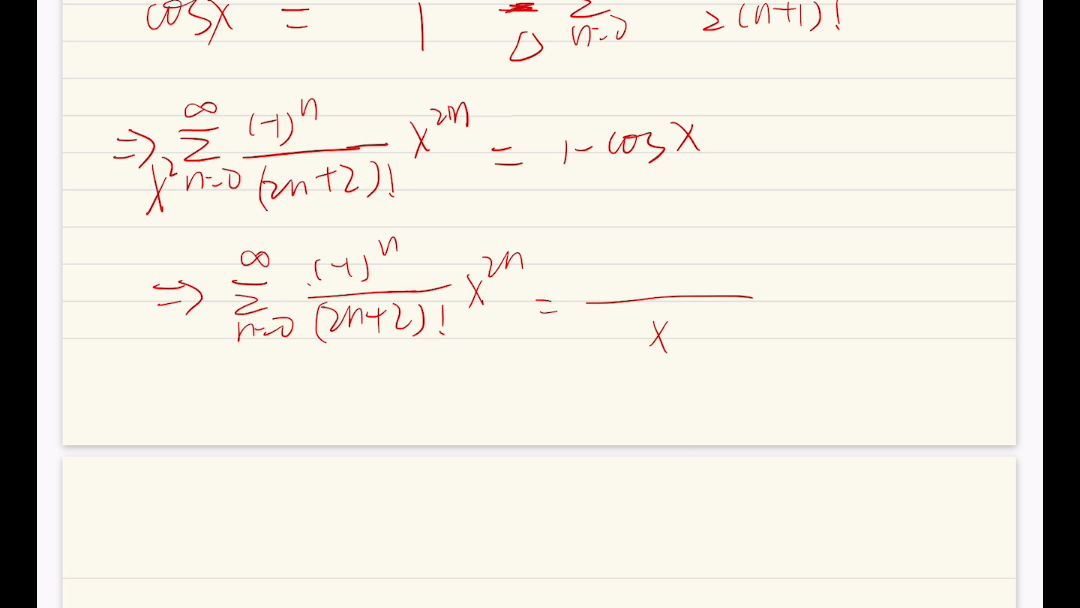 cosx = 1 - Σ n=0 2(n+1)!
⇒ x² ∞ Σ n=0 (-1)ⁿ / (2n+2)! x²ⁿ = 1 - cosx
⇒ ∞ Σ n=0 (-1)ⁿ / (2n+2)! x²ⁿ = / x